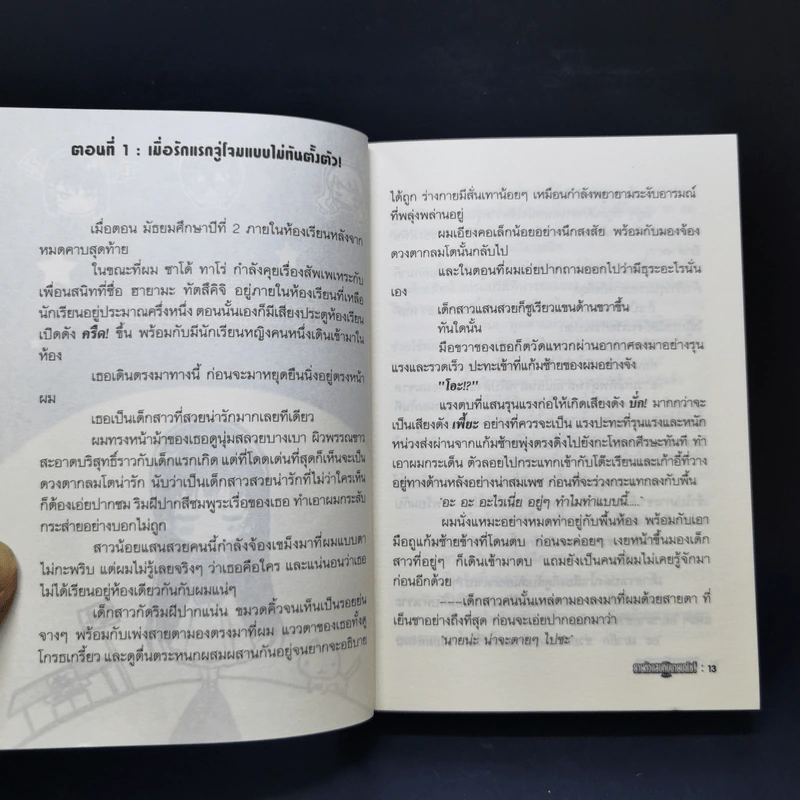 ตอนที่ 1 : เมื่อรักแรกจู่โจมแบบไม่ทันตั้งตัว!
เมื่อตอน มัธยมศึกษาปีที่ 2 ภายในห้องเรียนหลังจาก
หมดคาบสุดท้าย
ในขณะที่ผม ซาโต้ ทาโร่ กำลังคุยเรื่องสัพเพเหระกับ
เพื่อนสนิทที่ชื่อ ฮายามะ ทัตสึคิจิ อยู่ภายในห้องเรียนที่เหลือ
นักเรียนอยู่ประมาณครึ่งหนึ่ง ตอนนั้นเองก็มีเสียงประตูห้องเรียน
เปิดดัง ครืด! ขึ้น พร้อมกับมีนักเรียนหญิงคนหนึ่งเดินเข้ามาใน
ห้อง
เธอเดินตรงมาทางนี้ ก่อนจะมาหยุดยืนนิ่งอยู่ตรงหน้า
ผม
เธอเป็นเด็กสาวที่สวยน่ารักมากเลยทีเดียว
ผมทรงหน้าม้าของเธอดูนุ่มสลวยบางเบา ผิวพรรณขาว
สะอาดบริสุทธิ์ราวกับเด็กแรกเกิด แต่ที่โดดเด่นที่สุดก็เห็นจะเป็น
ดวงตากลมโตน่ารัก นับว่าเป็นเด็กสาวสวยน่ารักที่ไม่ว่าใครเห็น
ก็ต้องเอ่ยปากชม ริมฝีปากสีชมพูระเรื่อของเธอ ทำเอาผมกระสับ
กระส่ายอย่างบอกไม่ถูก
สาวน้อยแสนสวยคนนี้กำลังจ้องเขม็งมาที่ผมแบบตา
ไม่กะพริบ แต่ผมไม่รู้เลยจริงๆ ว่าเธอคือใคร และแน่นอนว่าเธอ
ไม่ได้เรียนอยู่ห้องเดียวกันกับผมแน่ๆ
เด็กสาวกัดริมฝีปากแน่น ขมวดคิ้วจนเห็นเป็นรอยย่น
จางๆ พร้อมกับเพ่งสายตามองตรงมาที่ผม แววตาของเธอทั้งดู
โกรธเกรี้ยว และดูตื่นตระหนกผสมผสานกันอยู่จนยากจะอธิบาย
ได้ถูก ร่างกายมีสั่นเทาน้อยๆ เหมือนกำลังพยายามระงับอารมณ์
ที่พลุ่งพล่านอยู่
ผมเอียงคอเล็กน้อยอย่างนึกสงสัย พร้อมกับมองจ้อง
ดวงตากลมโตนั้นกลับไป
และในตอนที่ผมเอ่ยปากถามออกไปว่ามีธุระอะไรนั่น
เอง
เด็กสาวแสนสวยก็ชูเรียวแขนด้านขวาขึ้น
ทันใดนั้น
มือขวาของเธอก็ตวัดแหวกผ่านอากาศลงมาอย่างรุน
แรงและรวดเร็ว ปะทะเข้าที่แก้มซ้ายของผมอย่างจัง
"โอะ!?"
แรงตบที่แสนรุนแรงก่อให้เกิดเสียงดัง บั้ก! มากกว่าจะ
เป็นเสียงดัง เพี้ยะ อย่างที่ควรจะเป็น แรงปะทะที่รุนแรงและหนัก
หน่วงส่งผ่านจากแก้มซ้ายพุ่งตรงดิ่งไปยังกะโหลกศีรษะทันที ทำ
เอาผมกระเด็น ตัวลอยไปกระแทกเข้ากับโต๊ะเรียนและเก้าอี้ที่วาง
อยู่ทางด้านหลังอย่างน่าสมเพช ก่อนที่จะร่วงกระแทกลงกับพื้น
"อะ อะ อะไรเนี่ย อยู่ๆ ทำไมทำแบบนี้...."
ผมนั่งแหมะอย่างหมดท่าอยู่กับพื้นห้อง พร้อมกับเอา
มือถูแก้มซ้ายข้างที่โดนตบ ก่อนจะค่อยๆ เงยหน้าขึ้นมองเด็ก
สาวที่อยู่ๆ ก็เดินเข้ามาตบ แถมยังเป็นคนที่ผมไม่เคยรู้จักมา
ก่อนอีกด้วย
---เด็กสาวคนนั้นเหล่ตามองลงมาที่ผมด้วยสายตา ที่
เย็นชาอย่างถึงที่สุด ก่อนจะเอ่ยปากออกมาว่า
"นายน่ะ น่าจะตายๆ ไปซะ"
: 13